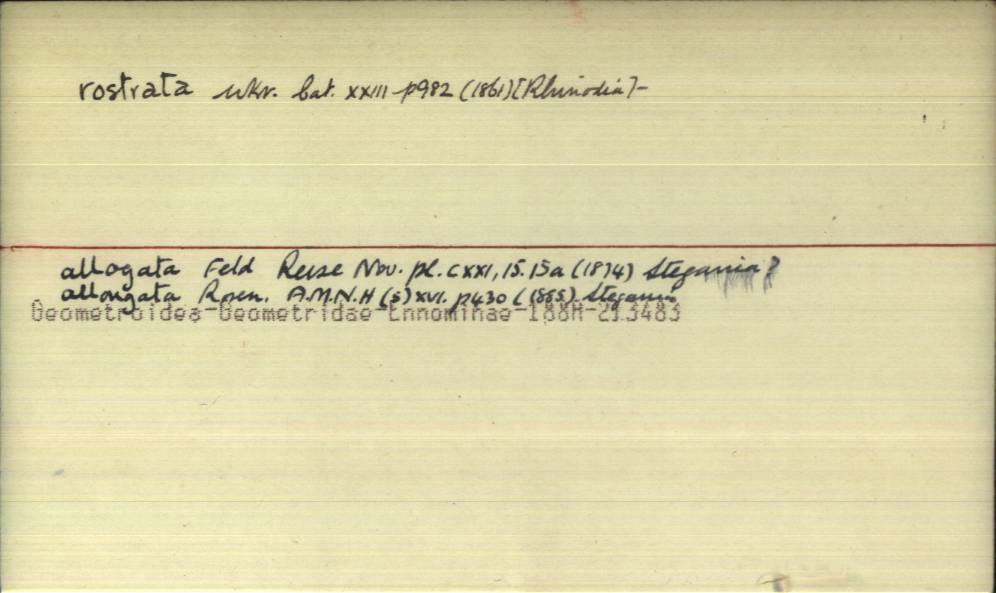 rostrata Wkr. Cat. XXIII p982 (1861) [Rhinodia] -
allogata Feld Reise Nov. pl. CXXI, 15. 15a (1874) Stegania ?
allongata Rosen. A.M.N.H (5) XVI. p430 (1885). Stegania
Geometroidea-Geometridae-Ennominae-188M-213483